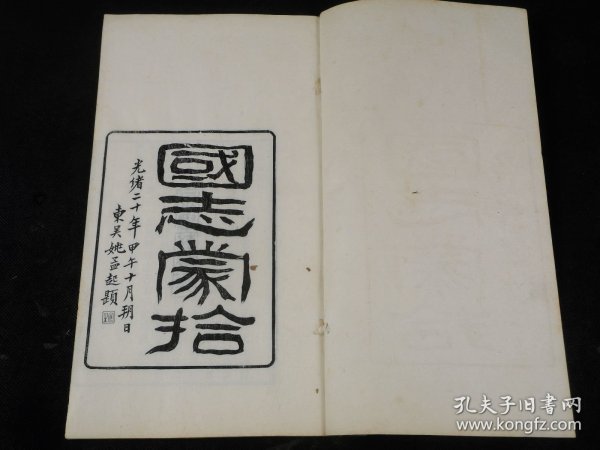 國志蒙拾
光緒二十年甲午十月朔日
東吳姚孟起題
孔夫子旧书网
www.kongfz.com